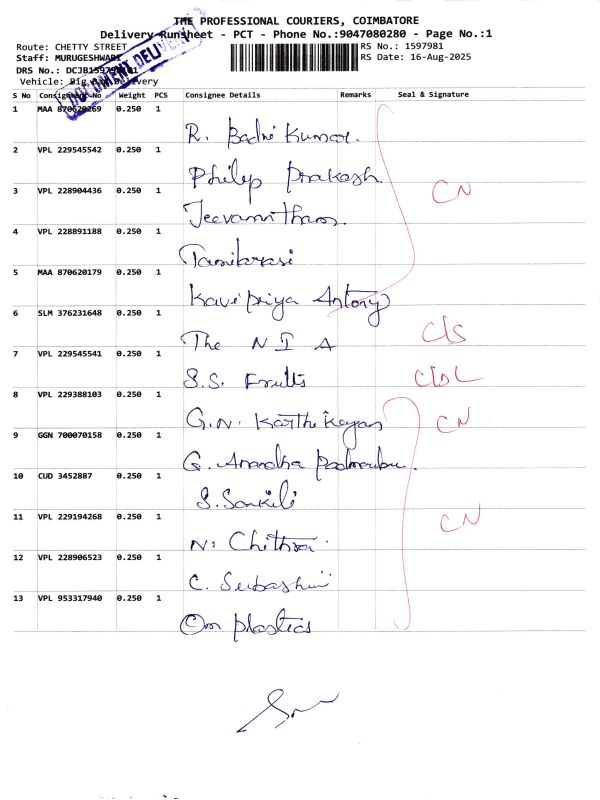 THE PROFESSIONAL COURIERS, COIMBATORE
Delivery Runsheet - PCT - Phone No.:9047080280 - Page No.:1
Route: CHETTY STREET
RS No.: 1597981
Staff: MURUGESHWARI
RS Date: 16-Aug-2025
DRS No.:
DOCUMENT DELIVERY
Vehicle: Big Delivery
S No Consignment No Weight PCS Consignee Details Remarks Seal & Signature
1 MAA 870620269 0.250 1
R. Badri Kumar.
2 VPL 229545542 0.250 1
Philip Prakash
3 VPL 228904436 0.250 1
CN
Jeevamritham
4 VPL 228891188 0.250 1
Tamilarasi
5 MAA 870620179 0.250 1
Kavipriya Antony
6 SLM 376231648 0.250 1
The N I A
C/S
7 VPL 229545541 0.250 1
S.S. Fruits
8 VPL 229388103 0.250 1
G.N. Karthikeyan
CN
9 GGN 700070158 0.250 1
G. Anandha
10 CUD 3452887 0.250 1
S. Sankili
11 VPL 229194268 0.250 1
CN
N. Chithra
12 VPL 228906523 0.250 1
C. Subashini
13 VPL 953317940 0.250 1
Om plastics